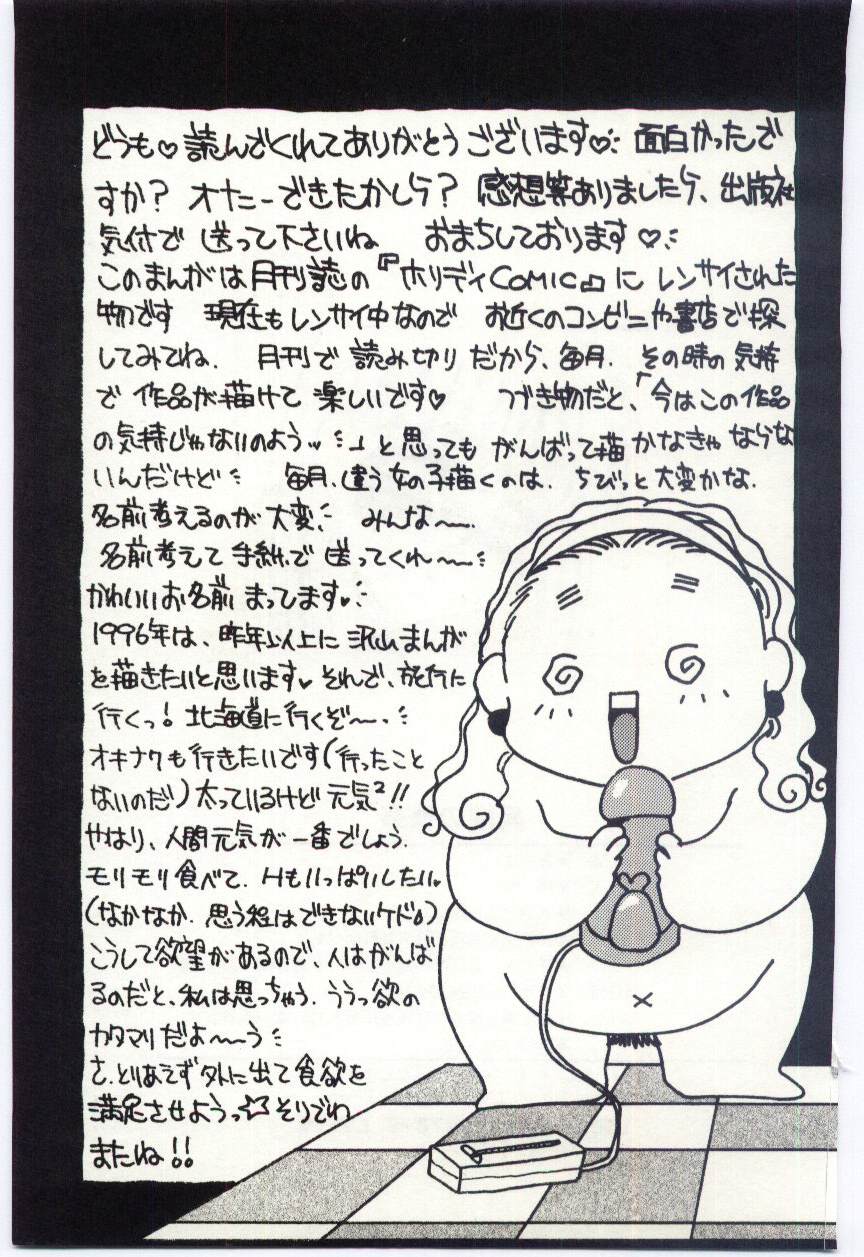 どうも♡読んでくれてありがとうございます♡ 面白かったで
すか? オナニーできたかしら? 感想等ありましたら、出版社
気付で 送って下さいね おまちしております♡
このまんがは月刊誌の『ホリディCOMIC』に レンサイされた
物です 現在もレンサイ中なので お近くのコンビニや書店で探
してみてね. 月刊で 読み切り だから、毎月. その時の気持
で 作品が描けて 楽しいです♡ つづき物だと、「今はこの作品
の気持じゃないのよう」と思っても がんばって描かなきゃ ならな
いんだけど 毎月、違う女の子描くのは. ちびっと大変かな.
名前考えるのが 大変 みんな〜〜.
名前考えて 手紙で 送ってくれ〜〜
かわいいお名前 まってます♡
1996年は、昨年以上に 沢山まんが
を描きたいと思います♡ それで、旅行に
行くっ! 北海道に行くぞ〜〜.
オキナワも行きたいです(行ったこと
ないのだ)太っているけど 元気²!!
やはり、人間元気が 一番でしょう.
モリモリ食べて. Hもいっぱいしたい
(なかなか. 思う程はできないケド)
こうして欲望があるので、人はがんば
るのだと、私は思っちゃう. ううっ欲の
カタマリだよ〜〜う
さ、とりあえず外に出て食欲を
満足させようっ☆ そりでわ
またね!!